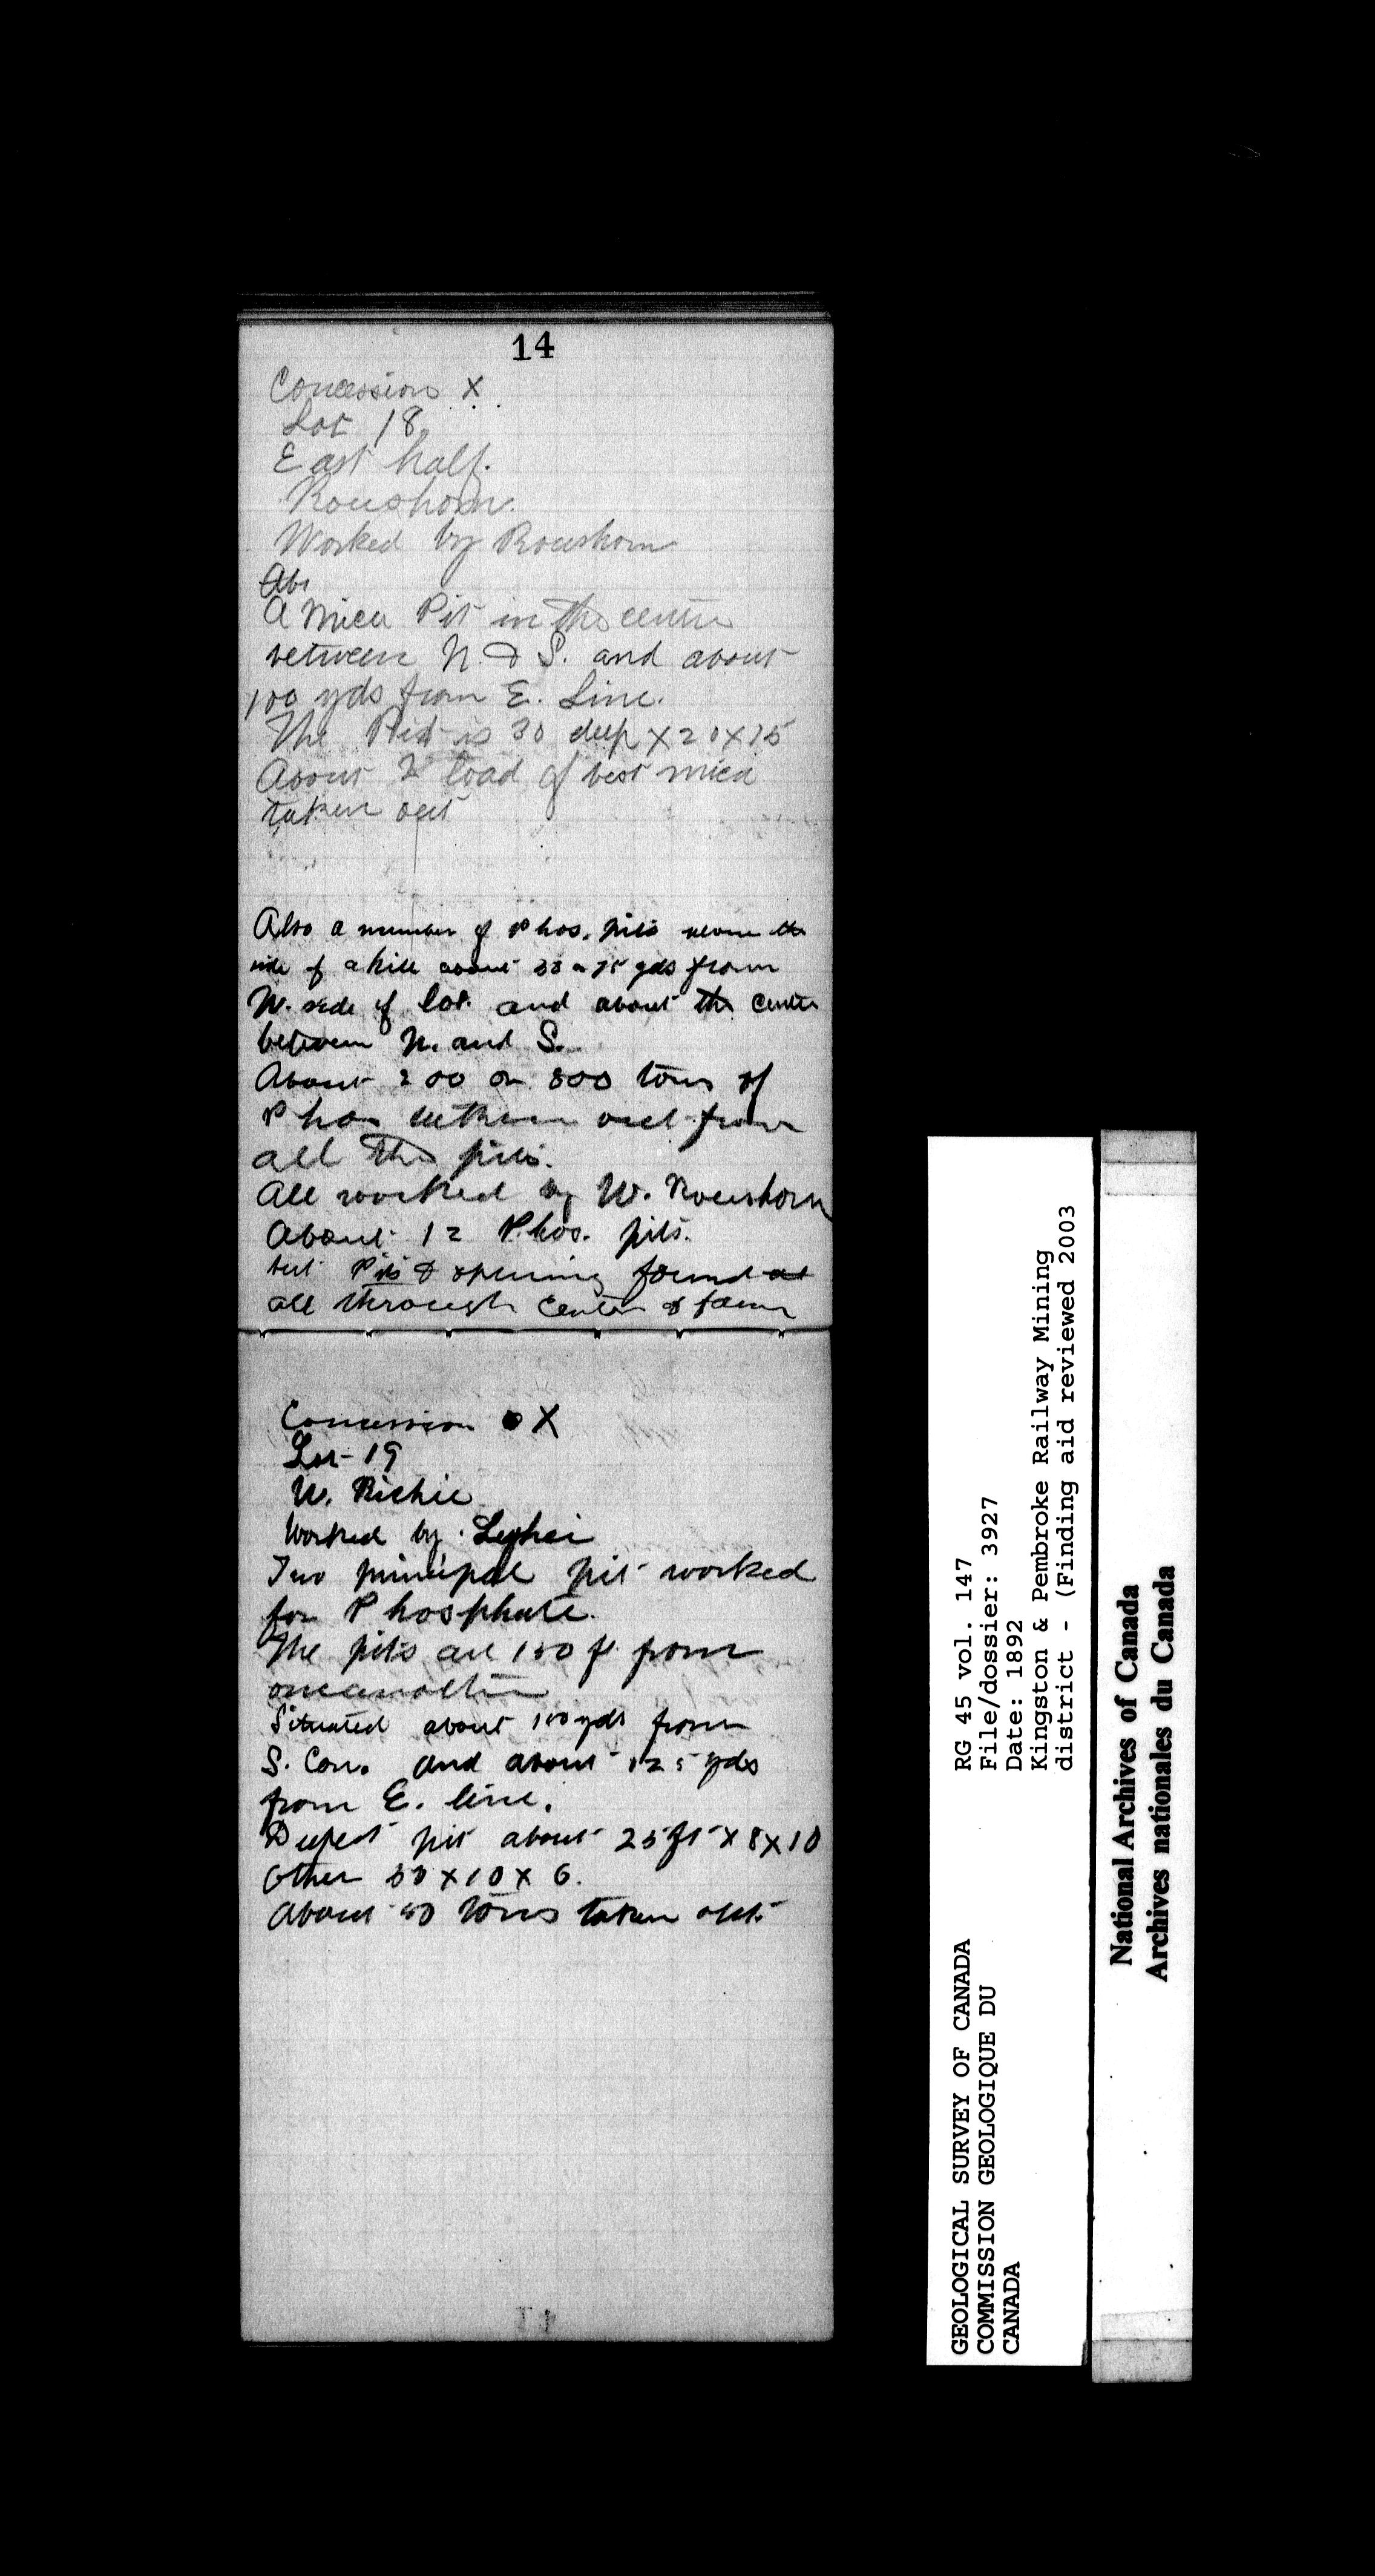 14
Concession X
Lot 18
East half.
Roushorn.
Worked by Roushorn
Abs
A Mica Pit in the centre
between N. & S. and about
100 yds from E. Line.
The Pit is 30 deep X 20 X 15
About 2 load of best mica
taken out
Also a number of Phos. pits the
side of a hill about yds from
W. side of lot and about the center
between N. and S.
About 200 or 300 tons of
Phos out from
all the pits.
All worked by W. Roushorn
About 12 Phos. pits.
but Pits & opening found at
all through center of farm
Concession X
Lot 19
W. Richie
Worked by
Two principal pit worked
for Phosphate.
The pits are 150 ft from
one another
Situated about 100 yds from
S. Con. and about 125 yds
from E. line.
Deepest pit about 25 ft X 8 X 10
Other 30 X 10 X 6.
About 50 tons taken out
RG 45 vol. 147
File/dossier: 3927
Date: 1892
Kingston & Pembroke Railway Mining
district - (Finding aid reviewed 2003
GEOLOGICAL SURVEY OF CANADA
COMMISSION GEOLOGIQUE DU
CANADA
National Archives of Canada
Archives nationales du Canada